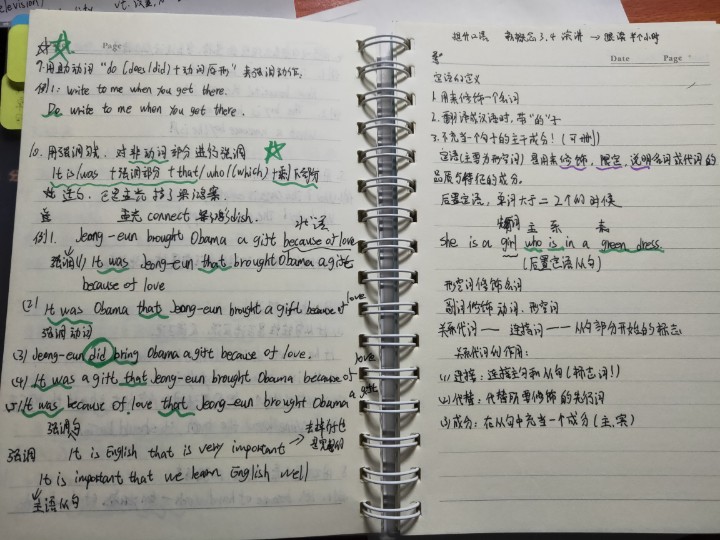 Page
9.用助动词"do (does/did)+动词原形"表强调动作.
例1: write to me when you get there.
Do write to me when you get there.
10. 用强调句, 对非动词部分进行强调
It is/was +强调部分 +that/who/(which) +剩下部分
connect
状语
例1. Jeong-eun brought Obama a gift because of love
强调(1) It was Jeong-eun that brought Obama a gift
because of love
(2) It was Obama that Jeong-eun brought a gift because of love
强调动词
(3) Jeong-eun did bring Obama a gift because of love.
(4) It was a gift that Jeong-eun brought Obama because of love
(5) It was because of love that Jeong-eun brought Obama a gift
强调句
强调 It is English that is very important →
It is important that we learn English well
主语从句
新概念3,4 → 跟读半个小时
Date Page
定语的定义
1.用来修饰一个名词
2.翻译成汉语时,带"的"字
3.不充当句子的主干成分!(可删)
定语(主要为形容词)是用来修饰,限定,说明名词或代词的
品质与特征的成分。
后置定语,单词大于=2个的时候
先行词 主 系 表
She is a girl who is in a green dress.
(后置定语从句)
形容词修饰名词
副词修饰动词.形容词
关系代词——连接词——从句部分开始的标志
关系代词的作用:
(1)连接:连接主句和从句(标志词!)
(2)代替:代替所要修饰的先行词
(3)成分:在从句中充当一个成分(主.宾)